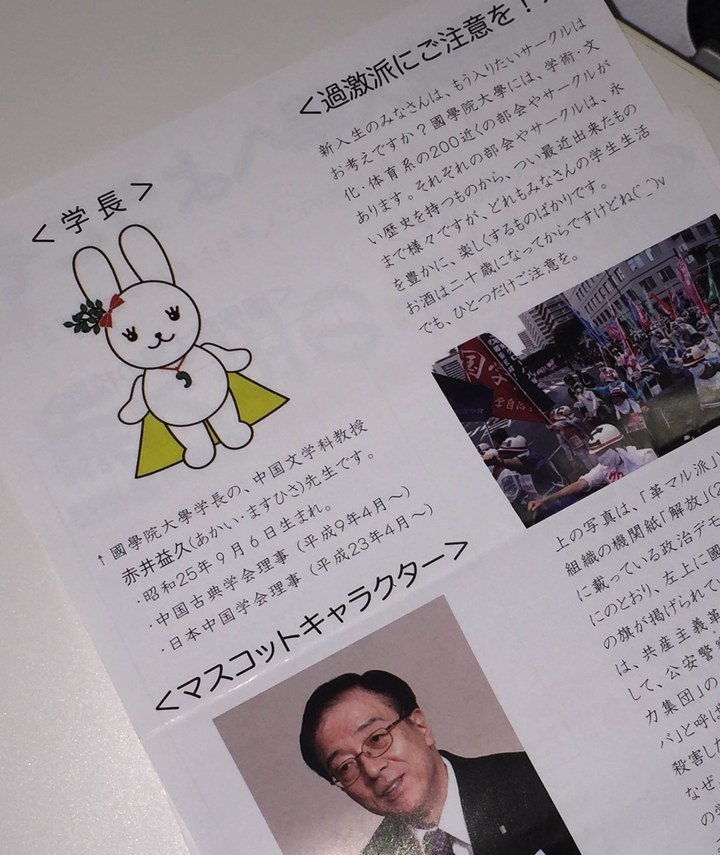 <学長>
↑國學院大學学長の、中国文学科教授
赤井益久(あかい・ますひさ)先生です。
・昭和25年9月6日生まれ。
・中国古典学会理事(平成9年4月〜)
・日本中国学会理事(平成23年4月〜)
<マスコットキャラクター>
<過激派にご注意を!
新入生のみなさんは、もう入りたいサークルは
お考えですか?國學院大學には、学術・文
化・体育系の200近くの部会やサークルが
あります。それぞれの部会やサークルは、永
い歴史を持つものから、つい最近出来たもの
まで様々ですが、どれもみなさんの学生生活
を豊かに、楽しくするものばかりです。
お酒は二十歳になってからですけどね(^_^)v
でも、ひとつだけご注意を。
上の写真は、「革マル派」
組織の機関紙「解放」(2
に載っている政治デモ
にのとおり、左上に國
の旗が掲げられて
は、共産主義革
して、公安警
カ集団」の
バ」と呼ば
殺害した
なぜ
の